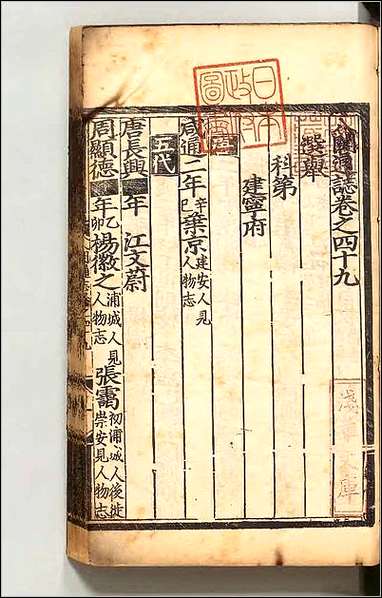 八閩通誌卷之四十九
選舉
科第
建寧府
唐
咸通二年辛巳葉京建安人見人物志
五代
唐長興 年 江文蔚
周顯德 年乙卯楊徽之浦城人見人物志 張霭初浦城人後徙崇安見人物志
日本
政府
圖書